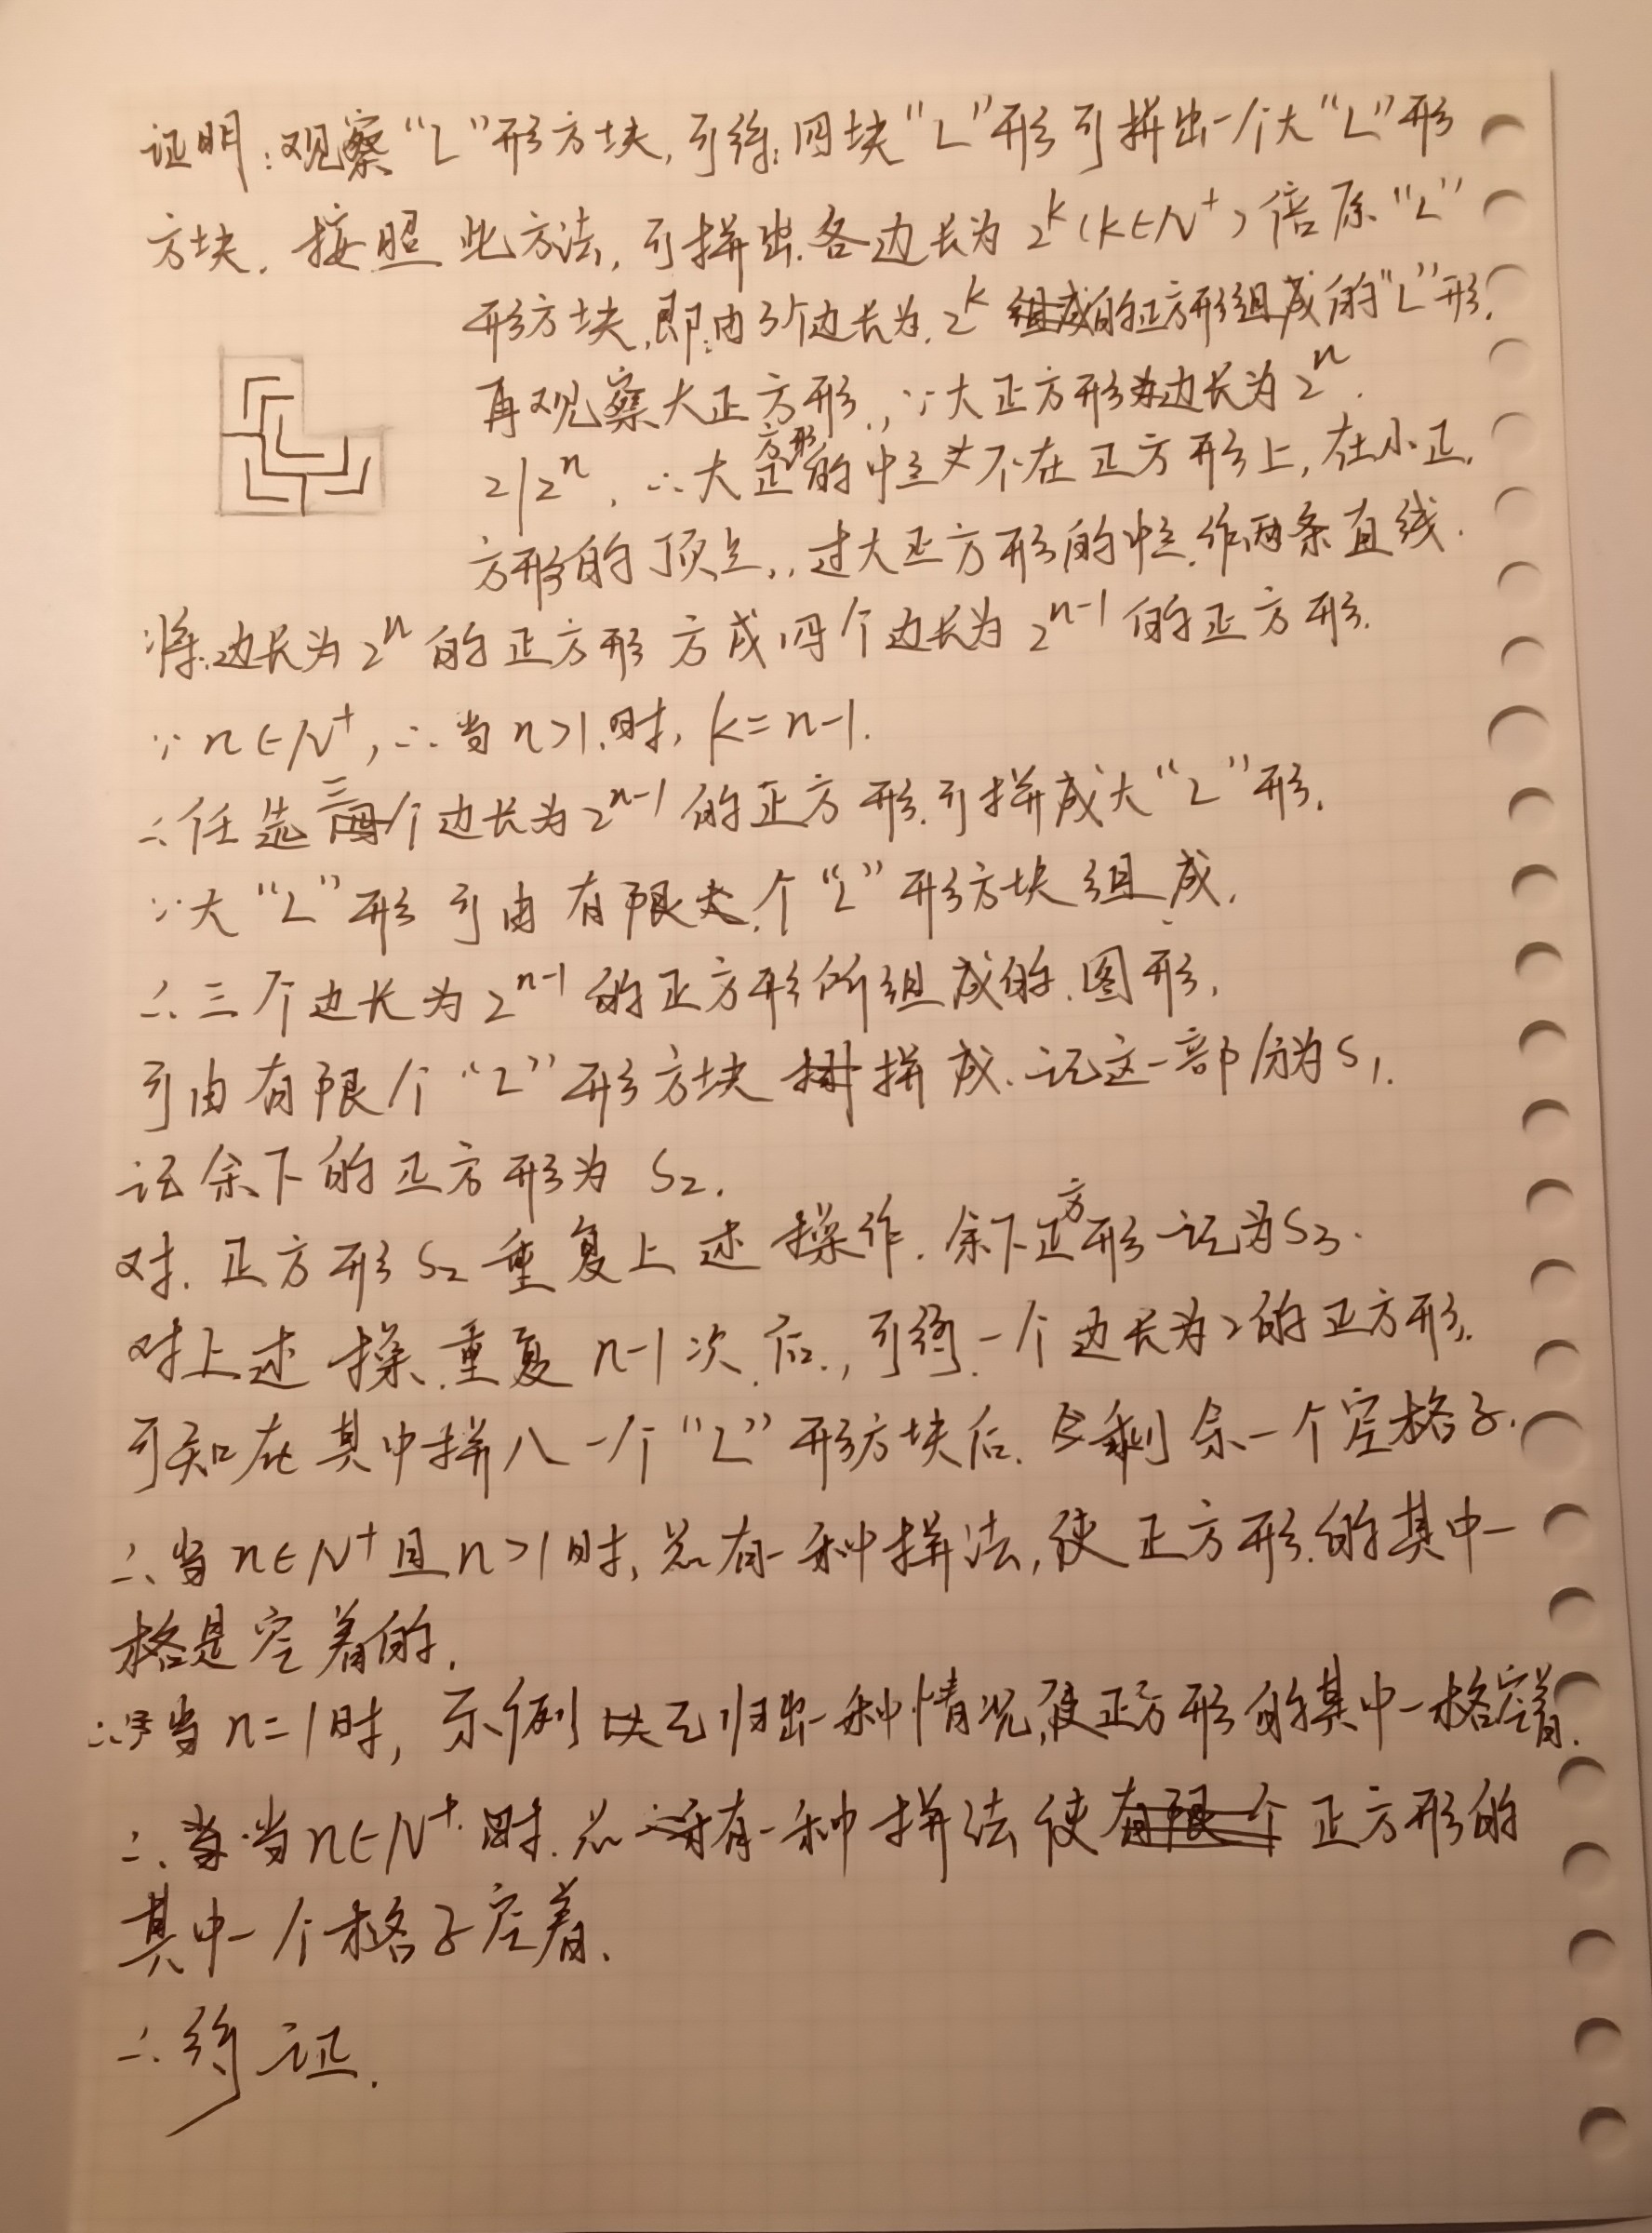 证明:观察“L”形方块,可得:四块“L”形可拼出一个大“L”形
方块.按照此方法,可拼出各边长为2^k(k∈N^+)倍原“L”
形方块,即:由3个边长为2^k的正方形组成的“L”形.
再观察大正方形,∵大正方形边长为2^n.
2|2^n,∴大正方形的中点不在正方形上,在小正
方形的顶点,过大正方形的中点作两条直线.
将边长为2^n的正方形方成四个边长为2^{n-1}的正方形.
∵n∈N^+,∴当n>1时,k=n-1.
∴任选三个边长为2^{n-1}的正方形可拼成大“L”形.
∵大“L”形可由有限个“L”形方块组成.
∴三个边长为2^{n-1}的正方形所组成的图形,
可由有限个“L”形方块拼成.记这一部分为S1.
记余下的正方形为S2.
对正方形S2重复上述操作.余下正方形记为S3.
对上述操重复n-1次后,可得一个边长为2的正方形.
可知在其中拼入一个“L”形方块后.只剩余一个空格子.
∴当n∈N^+且n>1时,总有一种拼法,使正方形的其中一
格是空着的.
∵当n=1时,示例已归出一种情况,使正方形的其中一格空着.
∴当n∈N^+时.总有一种拼法使正方形的
其中一个格子空着.
∴得证.